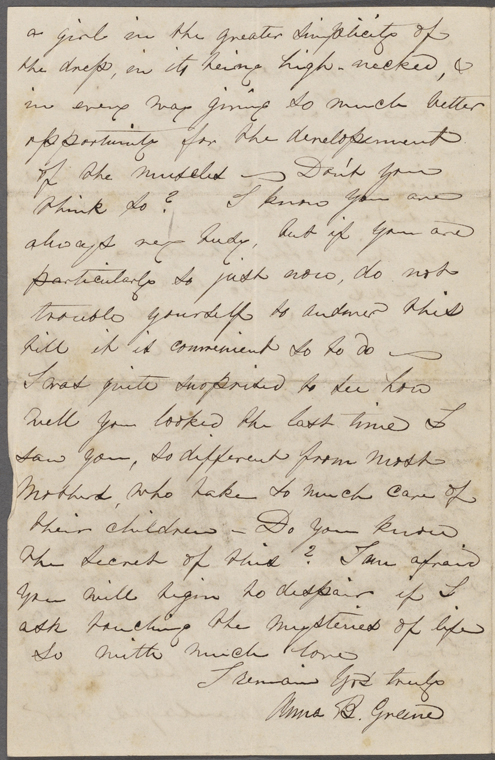 a girl in the greater simplicity of
the dress, in its being high-necked, &
in every way giving so much better
opportunity for the development
of the muscles — Don't you
think so? I know you are
always very busy, but if you are
particularly so just now, do not
trouble yourself to answer this
till it is convenient so to do —
I was quite surprised to see how
well you looked the last time I
saw you, so different from most
Mothers, who take so much care of
their children — Do you know
the secret of this? I am afraid
you will begin to despair if I
ask touching the mysteries of life
so with much love
I remain Yrs truly
Anna B. Greene